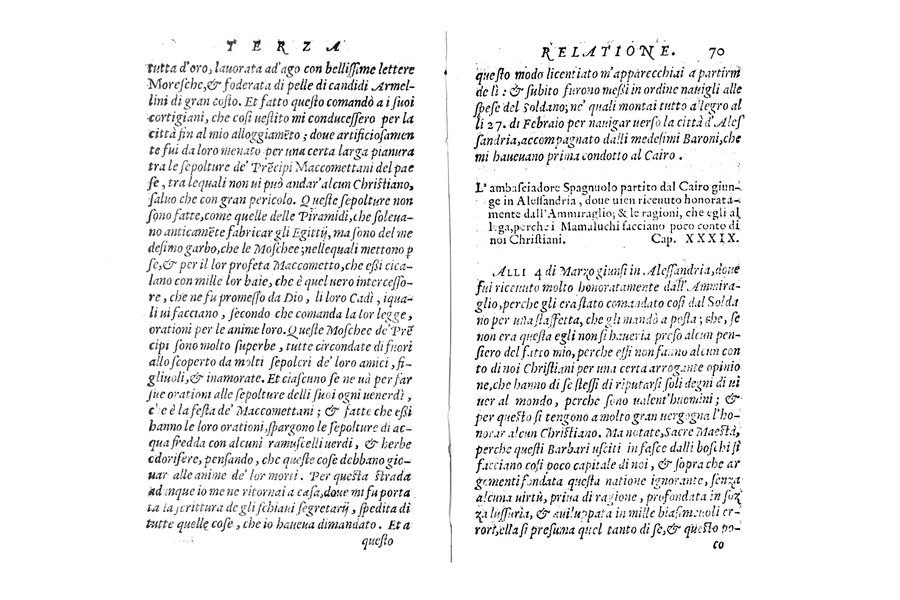 TERZA
tutta d'oro, lauorata ad'ago con bellissime lettere
Moresche, & foderata di pelle di candidi Armel-
lini di gran costo. Et fatto questo comandò a i suoi
cortigiani, che così uestito mi conducessero per la
città fin al mio alloggiamēto; doue artificiosamen
te fui da loro menato per una certa larga pianura
tra le sepolture de' Prēcipi Maccomettani del pae
se, tra lequali non ui può andar' alcun Christiano,
saluo che con gran pericolo. Queste sepolture non
sono fatte, come quelle delle Piramidi, che soleua-
no anticamēte fabricar gli Egittij, ma sono del me
desimo garbo, che le Moschee; nellequali mettono p
se, & per il lor profeta Maccometto, che essi cica-
lano con mille lor baie, che è quel uero intercesso-
re, che ne fu promesso da Dio, li loro Cadì, iqua-
li ui facciano, secondo che comanda la lor legge,
orationi per le anime loro. Queste Moschee de' Prē
cipi sono molto superbe, tutte circondate di fuori
allo scoperto da molti sepolcri de' loro amici, fi-
gliuoli, & inamorate. Et ciascuno se ne uà per far
sue orationi alle sepolture delli suoi ogni uenerdì,
che è la festa de' Maccomettani; & fatte che essi
hanno le loro orationi, spargono le sepolture di ac-
qua fredda con alcuni ramuscelli uerdi, & herbe
odorifere, pensando, che queste cose debbano gio-
uar alle anime de' lor morti. Per questa strada
adunque io me ne ritornai a casa, doue mi fu porta
ta la scrittura de gli schiaui segretarij, spedita di
tutte quelle cose, che io haueua dimandato. Et a
questo
RELATIONE. 70
questo modo licentiato m'apparecchiai a partirmi
de lì: & subito furono messi in ordine nauigli alle
spese del Soldano; ne' quali montai tutto allegro al
li 27. di Febraio per nauigar uerso la città d'Ales
sandria, accompagnato dalli medesimi Baroni, che
mi haueuano prima condotto al Cairo.
L'ambasciadore Spagnuolo partito dal Cairo giun-
ge in Alessandria, doue uien riceuuto honorata-
mente dall'Ammuraglio; & le ragioni, che egli al
lega, perche i Mamaluchi facciano poco conto di
noi Christiani. Cap. XXXIX.
ALLI 4 di Marzo giunsi in Alessandria, doue
fui riceuuto molto honoratamente dall'Ammira-
glio, perche gli era stato comandato così dal Solda
no per una staffetta, che gli mandò a posta; che, se
non era questa egli non si haueria preso alcun pen-
siero del fatto mio, perche essi non fanno alcun con
to di noi Christiani per una certa arrogante opinio
ne, che hanno di se stessi di riputarsi soli degni di ui
uer al mondo, perche sono ualent'huomini; &
per questo si tengono a molto gran uergogna l'ho-
norar alcun Christiano. Ma notate, Sacre Maestà,
perche questi Barbari usciti in fasce dalli boschi si
facciano così poco capitale di noi, & sopra che ar
gementi fondata questa natione ignorante, senza
alcuna uirtù, priua di ragione, profondata in soz
za lussuria, & auiluppata in mille biasimeuoli er-
rori, ella si presuma quel tanto di se, & questo po-
co